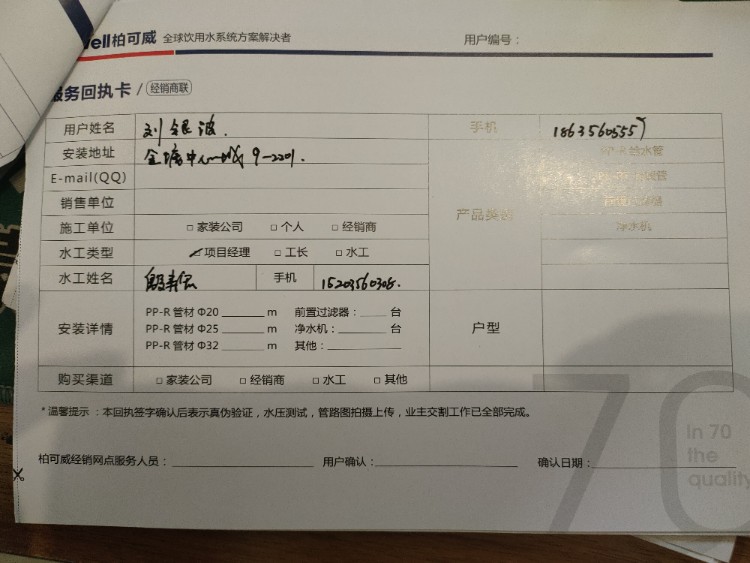 ell柏可威 全球饮用水系统方案解决者 用户编号：
服务回执卡 / 经销商联
用户姓名 刘银波. 手机 18635605557
安装地址 金塘中心城 9-2201. PP-R给水管
E-mail(QQ)
销售单位 产品类别
施工单位 □ 家装公司 □ 个人 □ 经销商 净水机
水工类型 ✓项目经理 □ 工长 □ 水工
水工姓名 手机 15203560308.
安装详情 PP-R 管材 Φ20 ______ m 前置过滤器：____ 台 户型
PP-R 管材 Φ25 ______ m 净水机：______ 台
PP-R 管材 Φ32 ______ m 其他：______
购买渠道 □ 家装公司 □ 经销商 □ 水工 □ 其他
*温馨提示：本回执签字确认后表示真伪验证，水压测试，管路图拍摄上传，业主交割工作已全部完成。
柏可威经销网点服务人员：______ 用户确认：______ 确认日期：______
70
In 70
the
quality